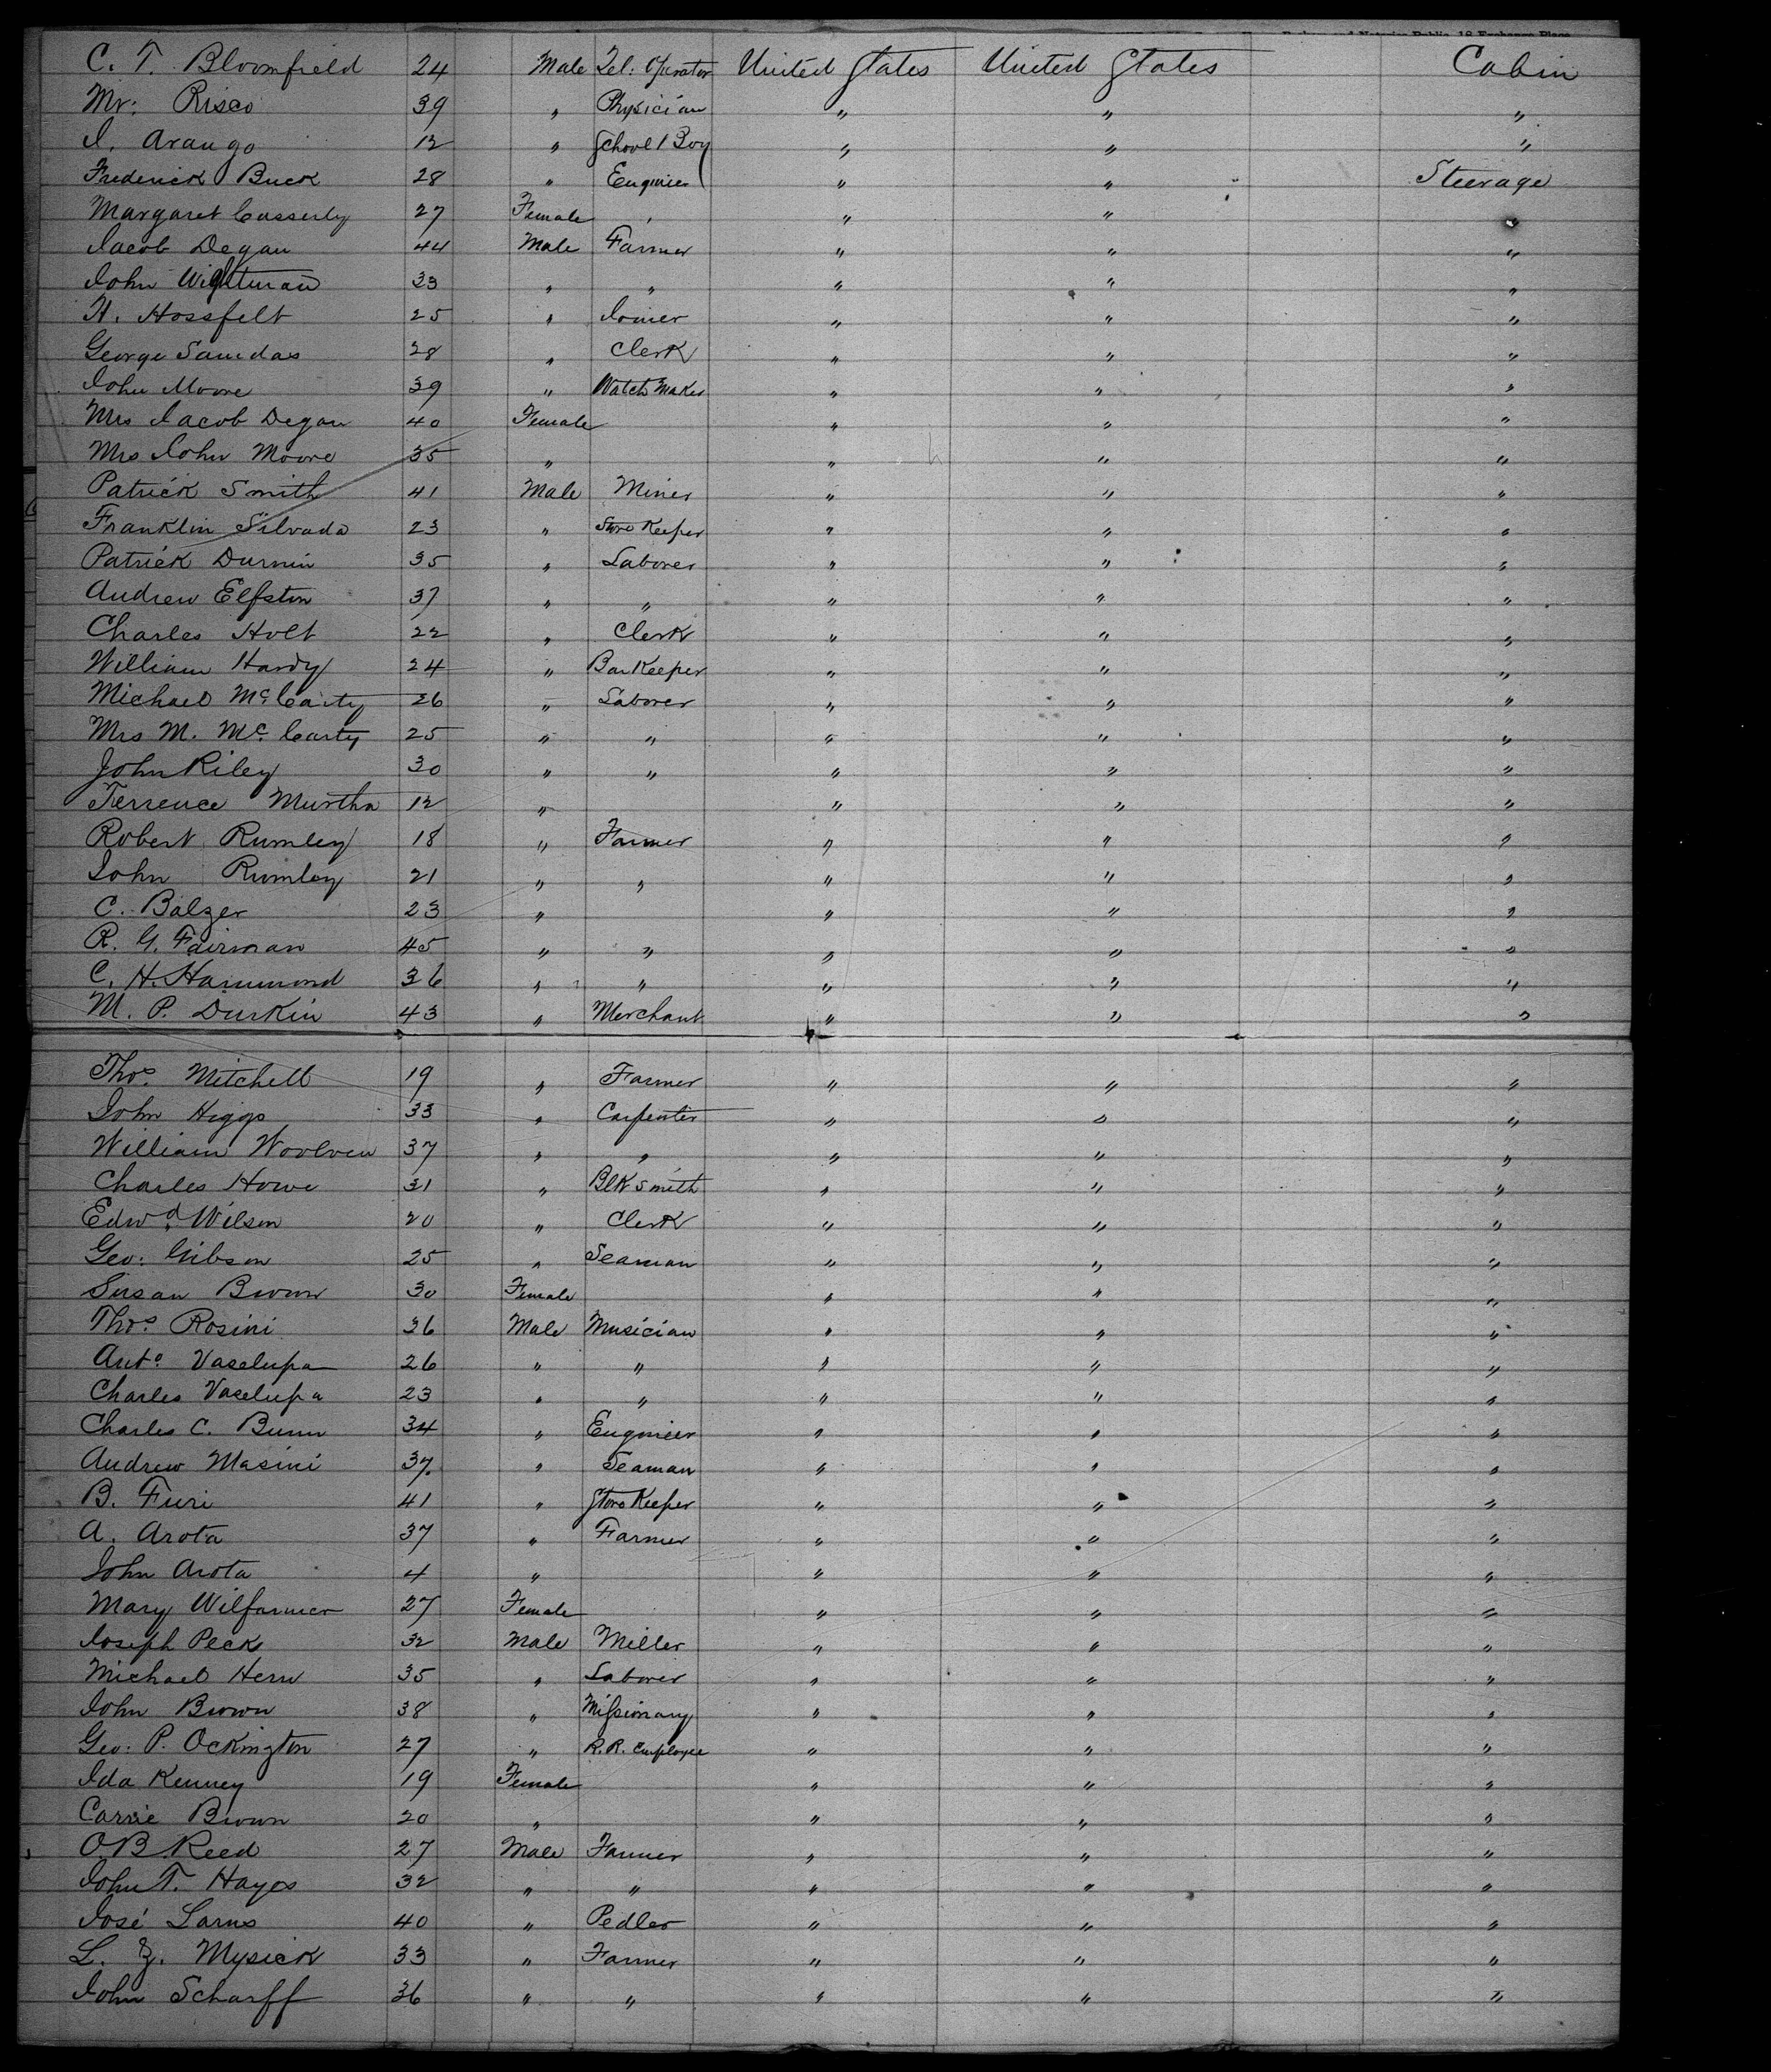 C. T. Bloomfield 24 Male Tel: Operator United States United States Cabin
Mr: Risco 39 " Physician " " "
I. Arango 12 " School Boy " " "
Frederick Buck 28 " Engineer " " Steerage
Margaret Casserly 27 Female " " " "
Jacob Degan 44 Male Farmer " " "
John Wightman 33 " " " " "
H. Hossfelt 25 " Joiner " " "
George Samdas 28 " Clerk " " "
John Moore 39 " Watch Maker " " "
Mrs Jacob Degan 40 Female " " "
Mrs John Moore 35 " " " "
Patrick Smith 41 Male Miner " " "
Franklin Silvada 23 " Store Keeper " " "
Patrick Durnin 35 " Laborer " " "
Andrew Elfston 37 " " " " "
Charles Holt 22 " Clerk " " "
William Hardy 24 " BarKeeper " " "
Michael McCarty 26 " Laborer " " "
Mrs M. McCarty 25 " " " " "
John Riley 30 " " " " "
Terrence Murtha 12 " " " "
Robert Rumley 18 " Farmer " " "
John Rumley 21 " " " " "
C. Balzer 23 " " " "
R. G. Fairman 45 " " " " "
C. H. Hammond 36 " " " " "
M. P. Durkin 43 " Merchant " " "
Thos. Mitchell 19 " Farmer " " "
John Higgs 33 " Carpenter " " "
William Woolven 37 " " " " "
Charles Howe 31 " Blk smith " " "
Edwd. Wilson 20 " Clerk " " "
Geo: Gibson 25 " Seaman " " "
Susan Brown 30 Female " " "
Thos. Rosini 36 Male Musician " " "
Anto. Vaselupa 26 " " " " "
Charles Vaselupa 23 " " " " "
Charles C. Bunn 34 " Engineer " " "
Andrew Masini 37. " Seaman " " "
B. Furi 41 " Store Keeper " " "
A. Arota 37 " Farmer " " "
John Arota 4 " " " "
Mary Wilfarmer 27 Female " " "
Joseph Peck 32 Male Miller " " "
Michael Hern 35 " Laborer " " "
John Brown 38 " Missionary " " "
Geo: P. Ockington 27 " R.R. Employee " " "
Ida Kenney 19 Female " " "
Carrie Brown 20 " " " "
O. B. Reed 27 Male Farmer " " "
John T. Hayes 32 " " " " "
José Larns 40 " Pedler " " "
L. Z. Mysick 33 " Farmer " " "
John Scharff 36 " " " " "